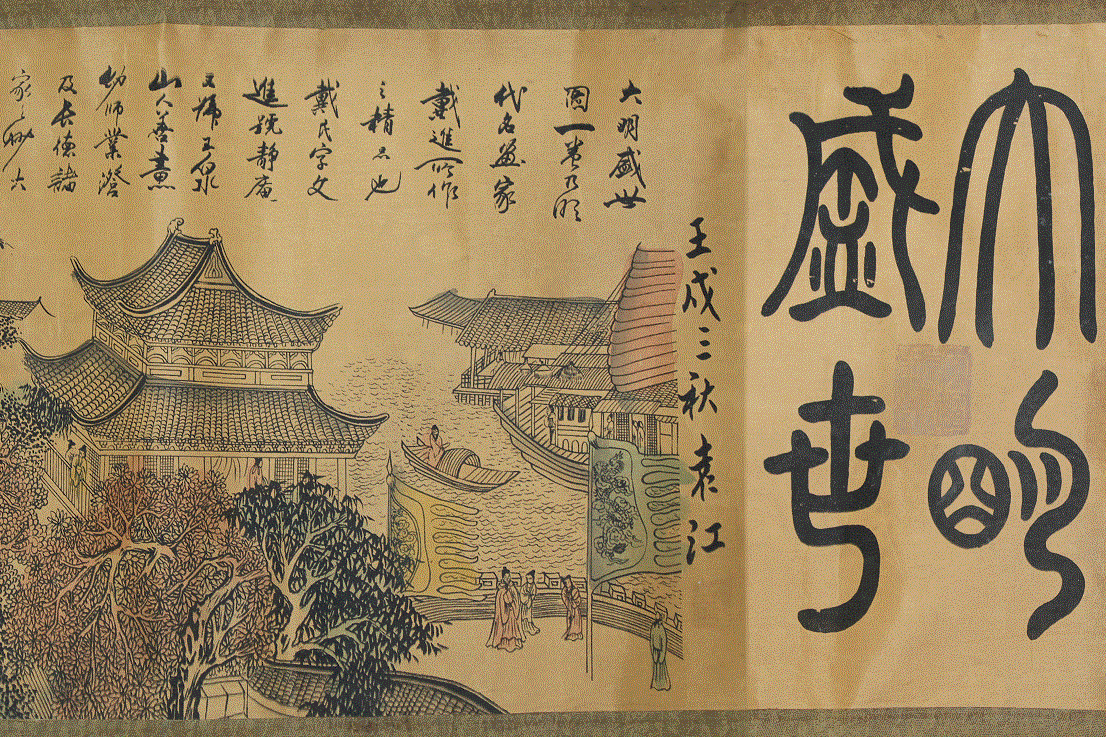 大明
盛世
壬戌三秋袁江
大明盛世
圖一卷乃明
代名畫家
戴進所作
之精品也
戴氏字文
進號靜庵
又號玉泉
山人善畫
幼師業澄
及長德諸
家
六